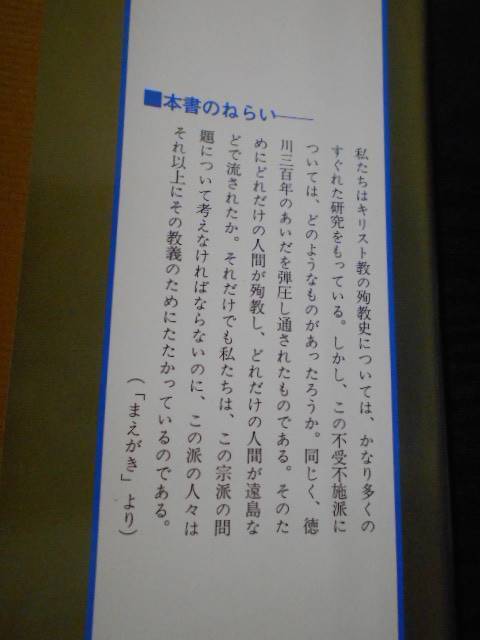 ■本書のねらい――
私たちはキリスト教の殉教史については、かなり多くの
すぐれた研究をもっている。しかし、この不受不施派に
ついては、どのようなものがあったろうか。同じく、徳
川三百年のあいだを弾圧し通されたものである。そのた
めにどれだけの人間が殉教し、どれだけの人間が遠島な
どで流されたか。それだけでも私たちは、この宗派の問
題について考えなければならないのに、この派の人々は
それ以上にその教義のためにたたかっているのである。
（「まえがき」より）